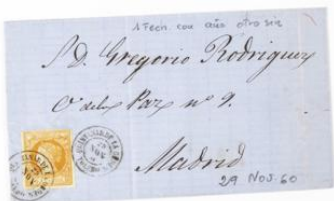 1 Fech. con año otro sin
S. D. Gregorio Rodriguez
C.ª de la Paz nº 9.
Madrid
29 NOV. 60